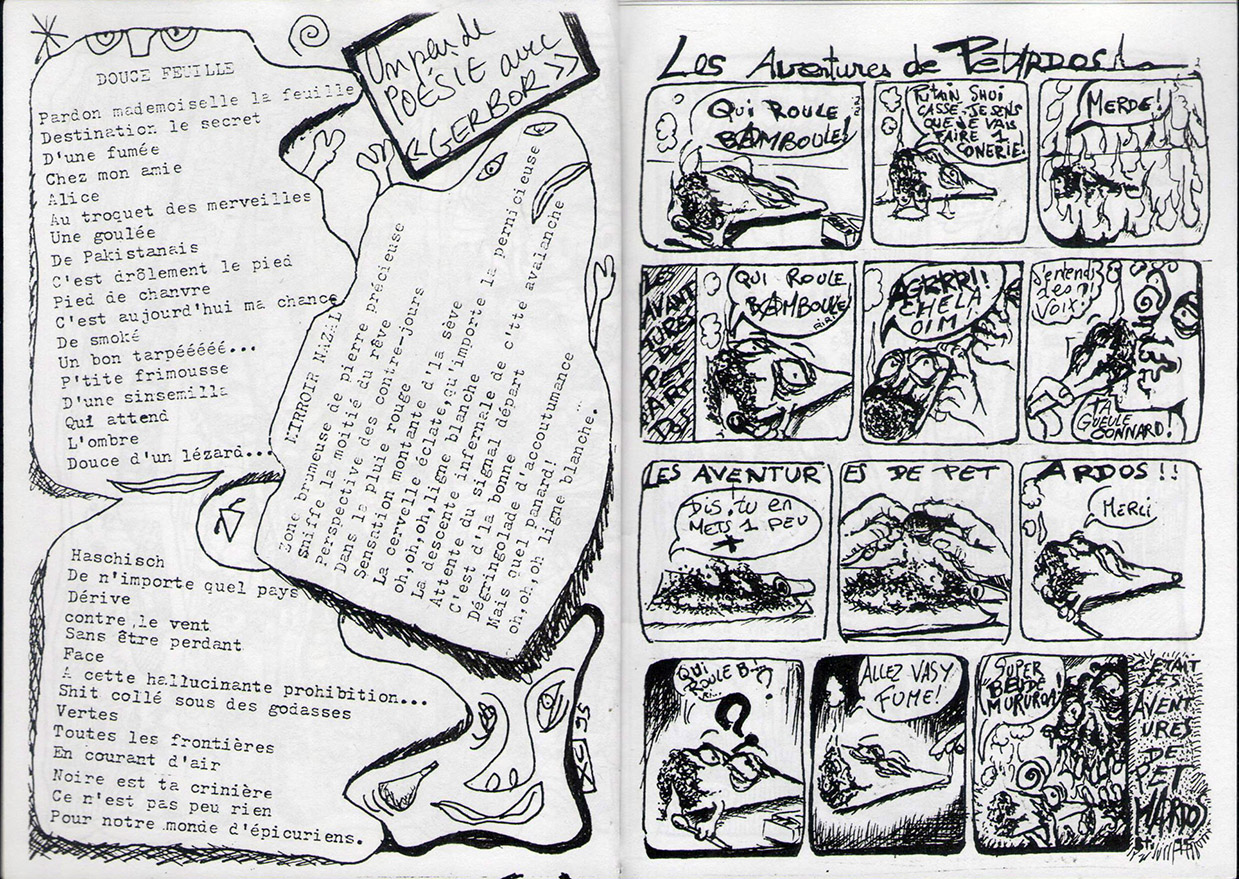 DOUCE FEUILLE
Pardon mademoiselle la feuille
Destination le secret
D'une fumée
Chez mon amie
Alice
Au troquet des merveilles
Une goulée
De Pakistanais
C'est drôlement le pied
Pied de chanvre
C'est aujourd'hui ma chance
De smoké
Un bon tarpééééé...
P'tite frimousse
D'une sinsemilla
Qui attend
L'ombre
Douce d'un lézard...
Un peu de
POÉSIE avec
<<GERBOR>>
MIRROIR NAZAL
Zone brumeuse de pierre précieuse
Sniffe la moitié du rêve
Perspective des contre-jours
Dans la pluie rouge
Sensation montante d'la sève
La cervelle éclate,qu'importe la pernicieuse
Oh,oh,oh,ligne blanche
La descente infernale de c'tte avalanche
Attente du signal départ
C'est d'la bonne
Dégringolade d'accoutumance
Mais quel panard!
Oh,oh,oh ligne blanche...
Haschisch
De n'importe quel pays
Dérive
contre le vent
Sans être perdant
Face
A cette hallucinante prohibition...
Shit collé sous des godasses
Vertes
Toutes les frontières
En courant d'air
Noire est ta crinière
Ce n'est pas peu rien
Pour notre monde d'épicuriens.
95
Les Aventures de PETARDOS!
QUI ROULE
BAMBOULE!
PUTAIN SHUI
CASSE. JE SENS
QUE JE VAIS
FAIRE 1
CONERIE!
MERDE!
LES
AVANT
TURES
DE
PET
ARD
OS
QUI ROULE
BAMBOULE!
AERRR!!
CHELA
OIM
J'entends
des
voix!
TA
GUEULE
CONNARD!
LES AVENTUR
ES DE PET
ARDOS!!
Dis, tu en
METS 1 PEU
+
MERCI
QUI
ROULE B
?
ALLEZ VASY
FUME!
SUPER
BEUDE
MURUROA!
C'ETAIT
LES
AVENT
URES
DE
PET
WARDOS